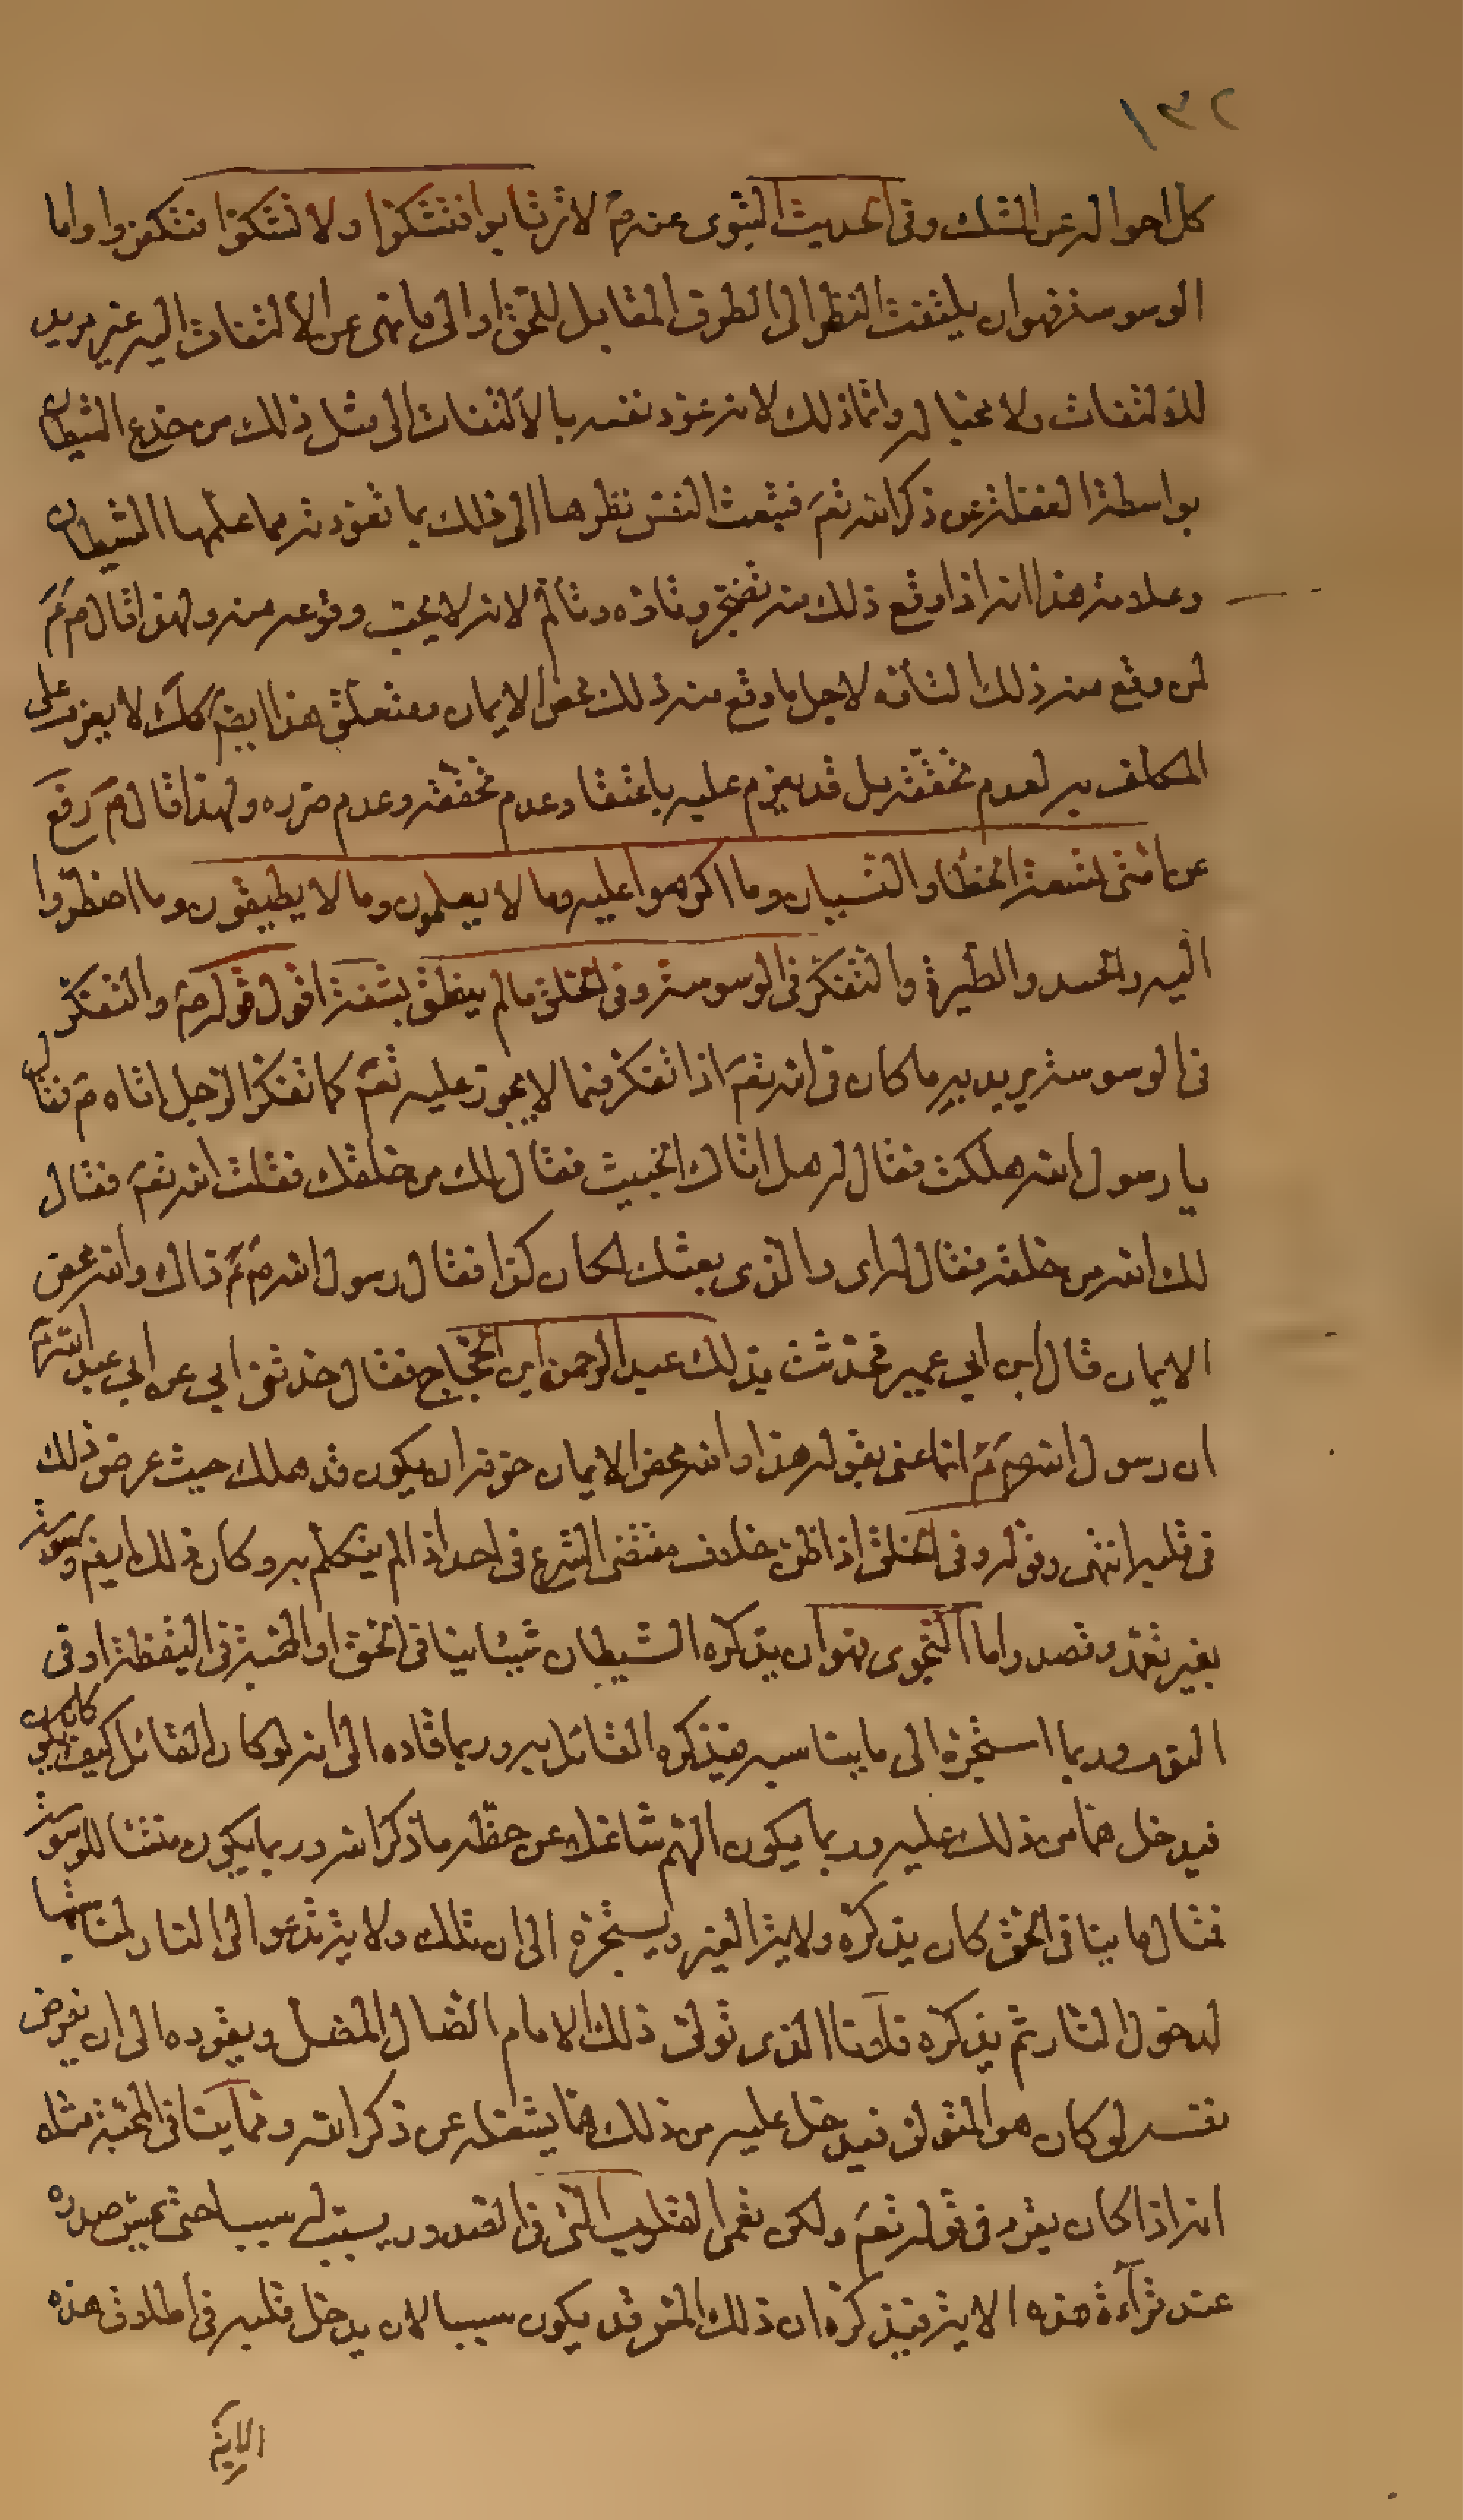 ١٣٢
كل احواله عن الشك وفى الحديث النبوى عنه ص لا ترتابوا فتشكوا ولا تشكوا فتكفروا واما
الوسوسة فهو ان يلتفت النظر الى الطرف المقابل للحق او الى ما نهى عن الالتفات اليه غير مريد
للالتفات ولا محبا له وانما ذلك لانه عود نفسه بالالتفات الى مثل ذلك من خدع الشيطان
بواسطة الغفلة عن ذكر الله تعم فتبعث النفس نظرها الى ذلك بما تعودته مما علمها الشيطان
وعلامة هذا انه اذا وقع ذلك منه تضجر وتاوه وتالم لانه لا يحب وقوعه منه ولهذا قال ص ع
لمن وقع منه ذلك التأوه لاجل ما وقع منه ذلك محض الايمان ومتعلق هذا ايضم كك لا يعزم على
المكلف به لعدم تحققه بل قد يعزم عليه باعتقاد عدم تحققه وعدم ضرره ولهذا قال ص رفع
عن امتى تسعة الخطا والنسيان وما اكرهوا عليه وما لا يعلمون وما لا يطيقون وما اضطروا
اليه والحسد والطيرة والتفكر فى الوسوسة وفى الخلق ما لم ينطق بشفة اقول قوله ص والتفكر
فى الوسوسة يريد به ما كان فى الله تعم اذا تفكر فيما لا يجوز عليه تعم كما تفكر الرجل اتاه ص فقال
يا رسول الله هلكت فقال له هل اتاك الخبيث فقال لك من خلقك فقلت الله تعم فقال
لك الله من خلقه فقال له اى والذى بعثك لكان كذا فقال رسول الله ص ع ذاك والله محض
الايمان قال ابن ابي عمير فحدثت بذلك عبد الرحمن ابن الحجاج فقال حدثنى ابي عن ابي عبد الله ع
ان رسول الله ص ع انما عنى بقوله هذا والله محض الايمان خوفه ان يكون قد هلك حيث عرض ذلك
فى قلبه انتهى وقوله وفى الخلق اذا ظن خلاف مقتضى الشرع فى احد اذا لم يتكلم به وكان ذلك ايضم وسوسة
بغير تعمد وقصد واما النجوى فهو ان يذكره الشيطان شيئا ينافى الحق او المحبة فى اليقظة او فى
النوم وربما استجره الى ما يناسبه فيذكره القائل به وربما قاده الى انه لو كان القائل كيف كان يكون
فيدخل هما من ذلك عليه وربما يكون الهم شاغلا عن حظه ما ذكر الله وربما يكون منشا للوسوسة
فمثال ما ينافى الحق كان يذكره ولاية الغير ويستجره الى ان تلك ولاية تدعوا الى النار لمناسبتها
لدخول النار ثم يذكره فلانا الذى تولى ذلك الامام الضال المضل ويقوده الى ان يفرض
نفسه لو كان هو المتولى فيدخل عليه من ذلك هما يشغله عن ذكر الله ومما ينافى المحبة مثلا
انه اذا كان يقرء فى قوله تعم ولكن تعمى القلوب التى فى الصدور يسبب له سببا حتى يحبس صدره
عند قراءة هذه الاية فيذكره ان ذلك المقر قد يكون سببا لان يدخل قلبه فى اطلاق هذه
الاية